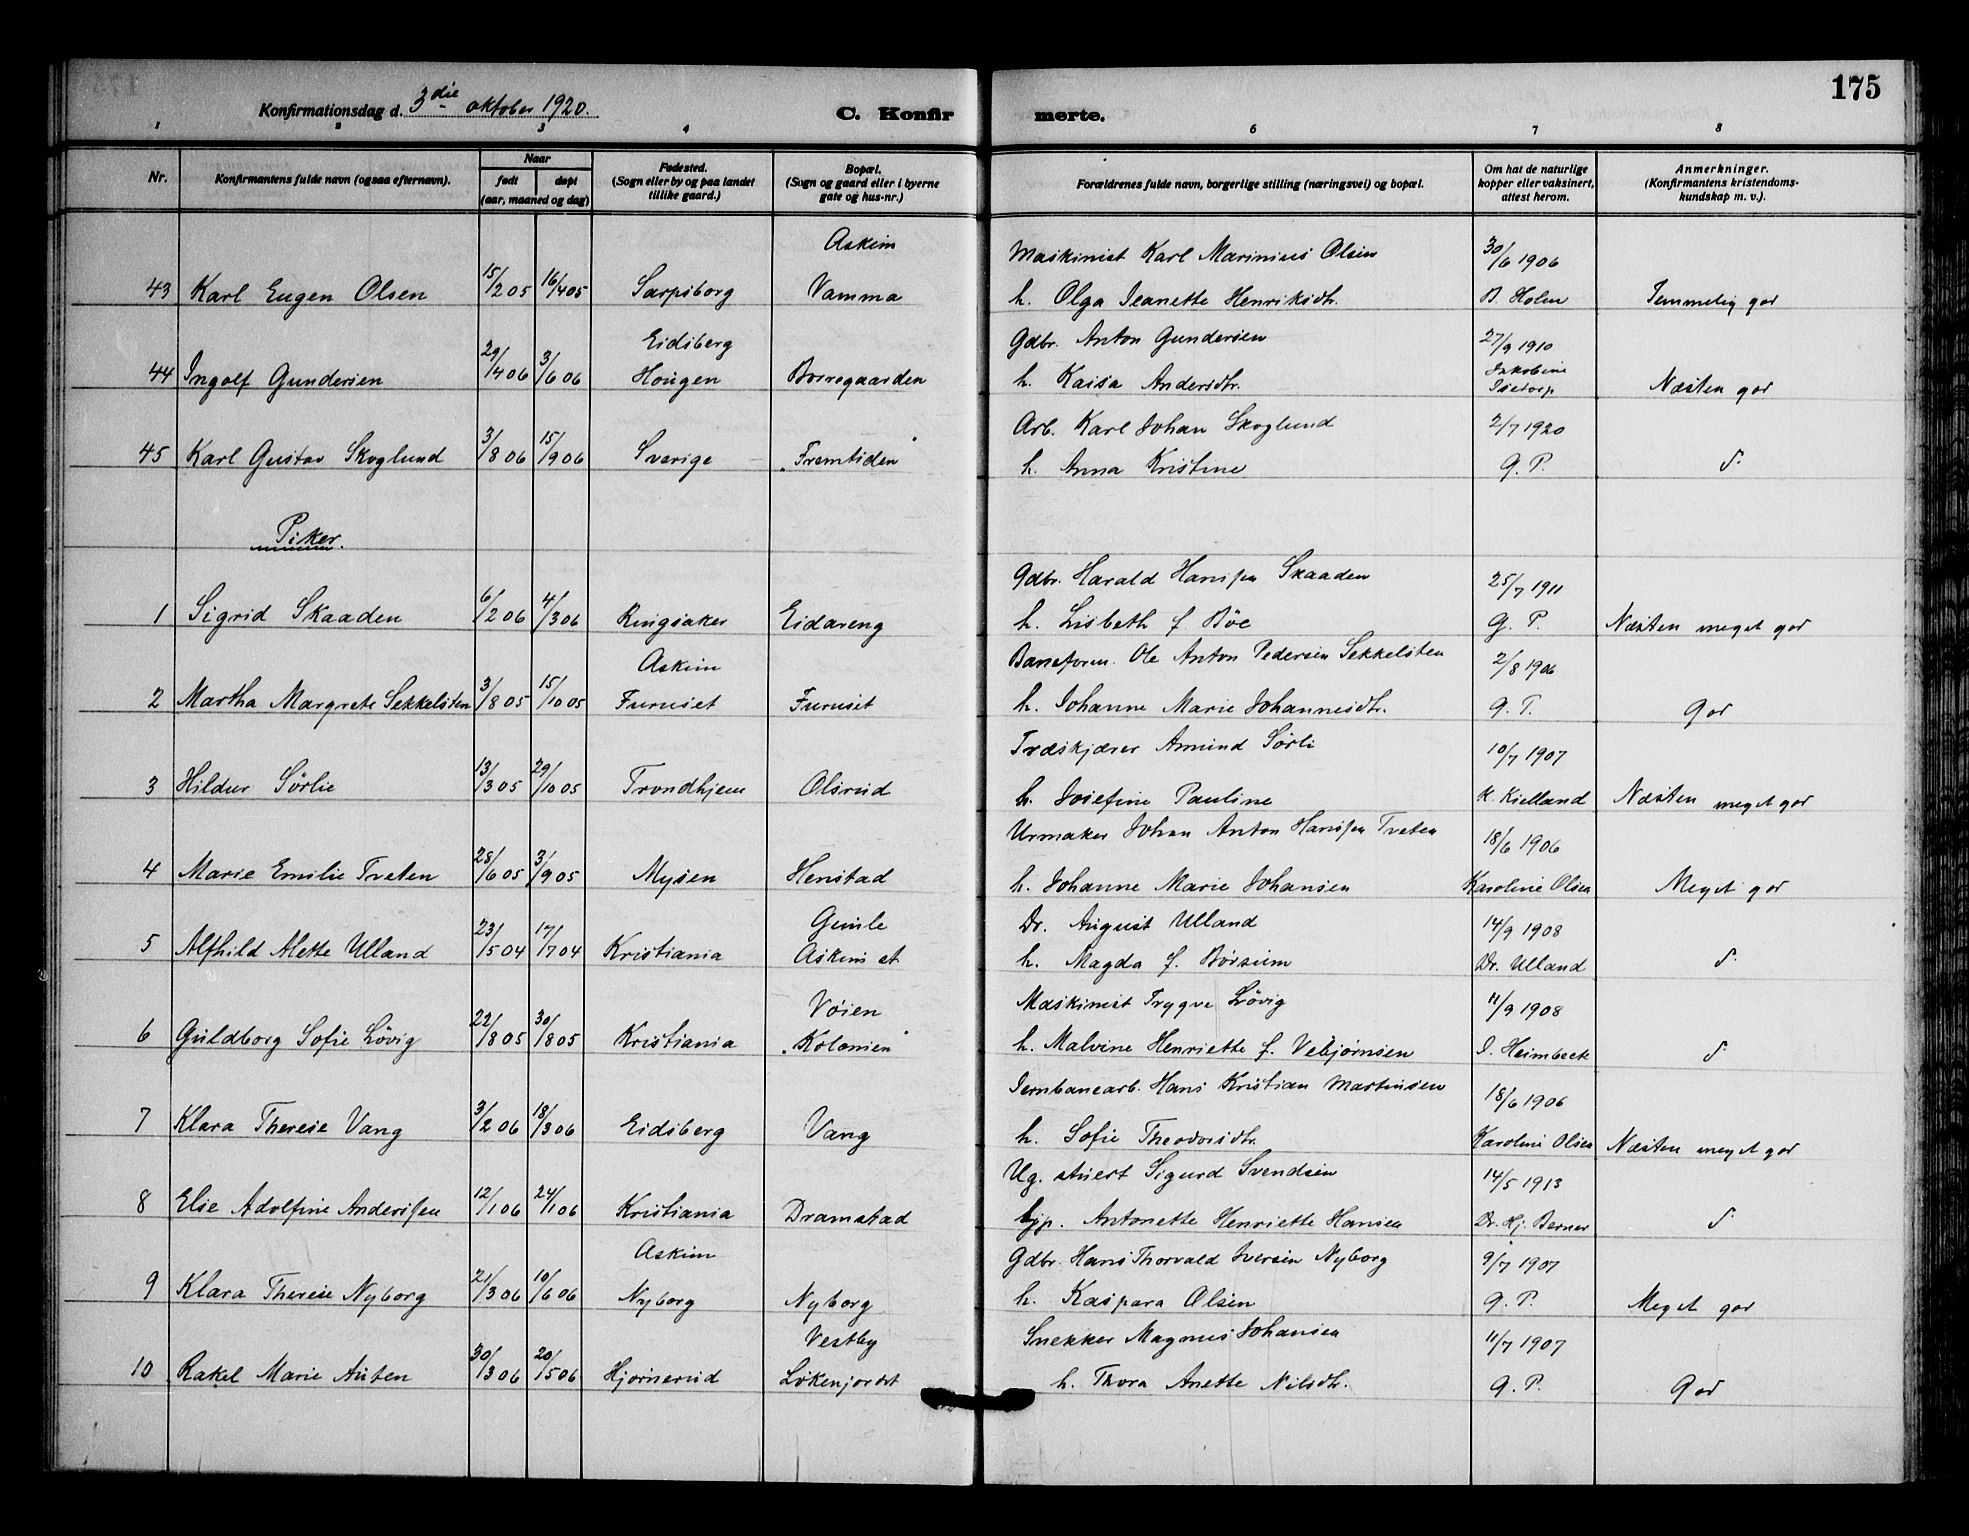 175
Konfirmationsdag d. 3die oktober 1920.
C. Konfirmerte.
1 2 3 4 6 7 8
Nr.
Konfirmantens fulde navn (ogsaa efternavn).
Naar
født
døpt
(aar, maaned og dag)
Fødested.
(Sogn eller by og paa landet
tillike gaard.)
Bopæl.
(Sogn og gaard eller i byerne
gate og hus-nr.)
Forældrenes fulde navn, borgerlige stilling (næringsvei) og bopæl.
Om hat de naturlige
kopper eller vaksinert,
attest herom.
Anmerkninger.
(Konfirmantens kristendoms-
kundskap m. v.).
Askim Maskinist Karl Marinius Olsen 30/6 1906
43 Karl Eugen Olsen 15/2 05 16/4 05 Sarpsborg Vamma h. Olga Jeanette Henriksdtr. B. Holen Temmelig god
Eidsberg Gdbr. Anton Gundersen 27/9 1910
44 Ingolf Gundersen 29/4 06 3/6 06 Hougen Borregaarden h. Kaisa Andersdtr. Jakobine Næsten god
Arb. Karl Johan Skoglund 2/7 1920
45 Karl Gustav Skoglund 3/8 06 15/9 06 Sverige "Fremtiden" h. Anna Kristine G. P. d.
Piker.
Gdbr. Harald Hanssen Skaaden 25/7 1911
1 Sigrid Skaaden 6/2 06 4/3 06 Ringsaker Eidareng h. Lisbeth f. Böe G. P. Næsten meget god
Askim Baneform. Ole Anton Pedersen Sekkelsten 2/8 1906
2 Martha Margrete Sekkelsten 3/8 05 15/10 05 Furuset Furuset h. Johanne Marie Johannesdtr. G. P. God
Træskjærer Amund Sörli 10/7 1907
3 Hildur Sörlie 13/3 05 29/10 05 Trondhjem Olsrud h. Josefine Pauline K. Kielland Næsten meget god
Urmaker Johan Anton Hanssen Tveten 18/6 1906
4 Marie Emilie Tveten 28/6 05 3/9 05 Mysen Henstad h. Johanne Marie Johansen Karoline Olsen Meget god
Gimle Dr. August Ulland 14/9 1908
5 Alfhild Mette Ulland 23/5 04 17/7 04 Kristiania Askim st. h. Magda f. Börsum Dr. Ulland d.
Vöien Maskinist Trygve Lövig 11/9 1908
6 Guldborg Sofie Lövig 22/8 05 30/8 05 Kristiania "Kolonien" h. Malvine Henriette f. Vebjørnsen Heimbeck d.
Jernbanearb. Hans Kristian Martinsen 18/6 1906
7 Klara Therese Vang 3/2 06 18/3 06 Eidsberg Vang h. Sofie Theodorsdtr. Karoline Olsen Næsten meget god
Ug. stuert Sigurd Svendsen 14/5 1913
8 Else Adolfine Anderssen 12/1 06 24/1 06 Kristiania Dramstad tjp. Antonette Henriette Hansen Dr. Hj. Berner d.
Askim Gdbr. Hans Thorvald Iversen Nyborg 9/7 1907
9 Klara Therese Nyborg 21/3 06 10/6 06 Nyborg Nyborg h. Kaspara Olsen G. P. Meget god
Vestby Snekker Magnus Johansen 11/7 1907
10 Rakel Marie Auten 30/3 06 20/5 06 Hjørnerud Lökenjordet h. Thora Anette Nilsdtr. G. P. God